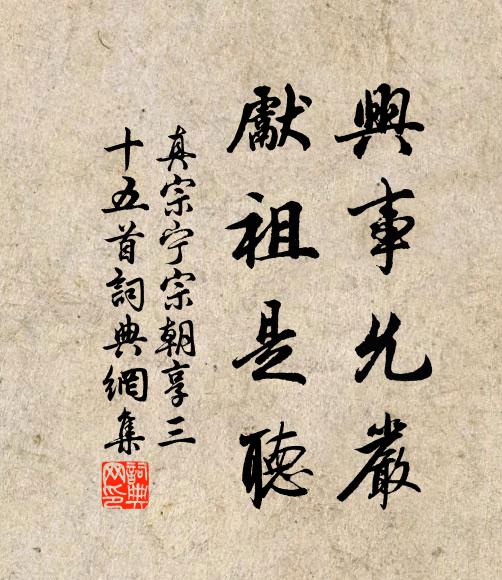 興事允嚴
獻祖是聽
真宗宁宗朝享三
十五首詞典網集
詞典网印